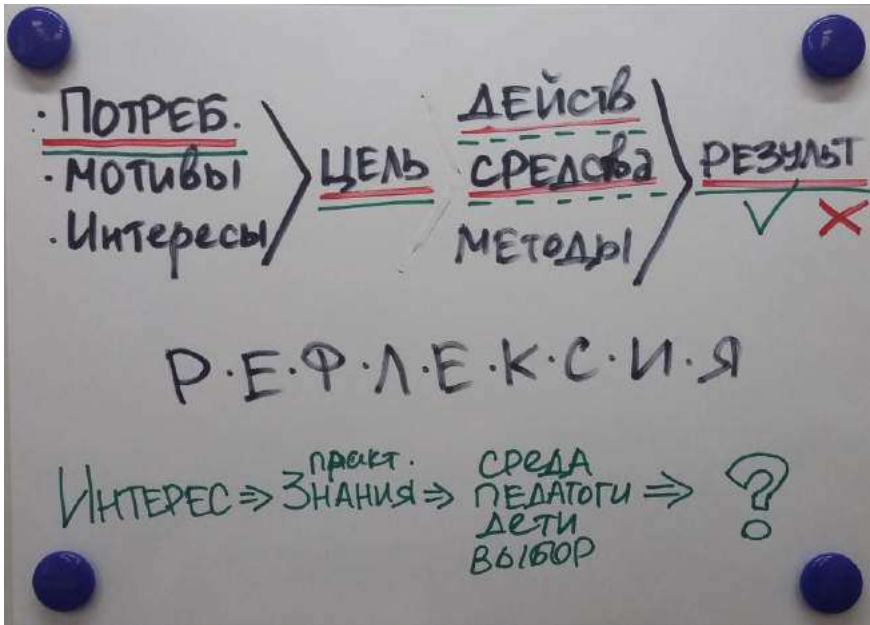 · ПОТРЕБ.
· МОТИВЫ
· Интересы
ЦЕЛЬ
ДЕЙСТВ
СРЕДСТВА
МЕТОДЫ
РЕЗУЛЬТ
Р·Е·Ф·Л·Е·К·С·И·Я
ИНТЕРЕС ⇒ практ. ЗНАНИЯ ⇒
СРЕДА
ПЕДАГОГИ
ДЕТИ
ВЫБОР
⇒ ?